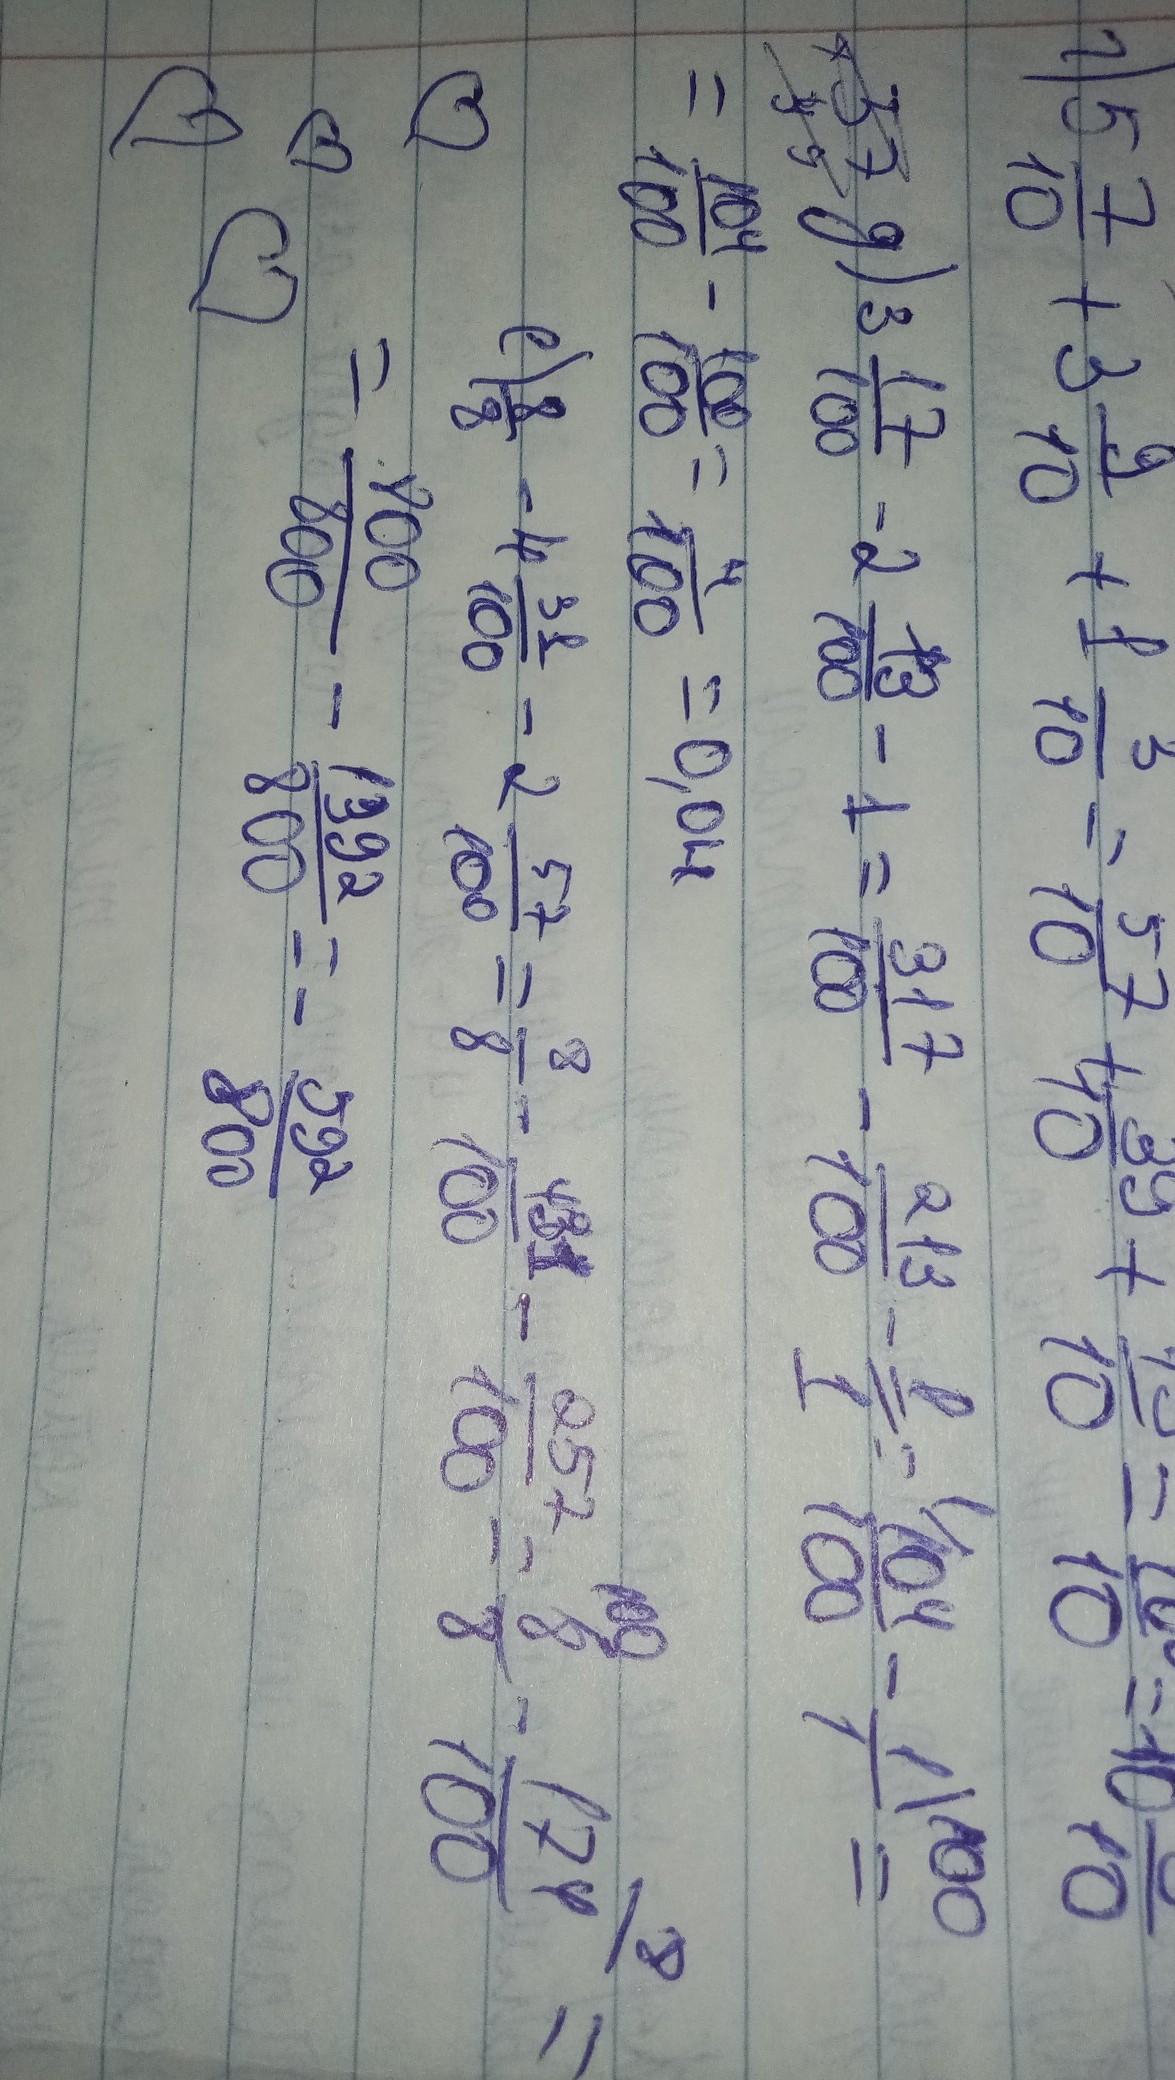 1) 5 7/10 + 3 9/10 + 1 3/10 = 57/10 + 39/10 + 13/10 =
g) 3 17/100 - 2 13/100 - 1 = 317/100 - 213/100 - 1/1 = 104/100 - 1/1 \100 =
= 104/100 - 100/100 = 4/100 = 0,04
e) 8/8 - 4 31/100 - 2 57/100 = 8/8 - 431/100 - 257/100 = 8/8 \100 - 174/100 \8 =
= 800/800 - 1392/800 = - 592/800